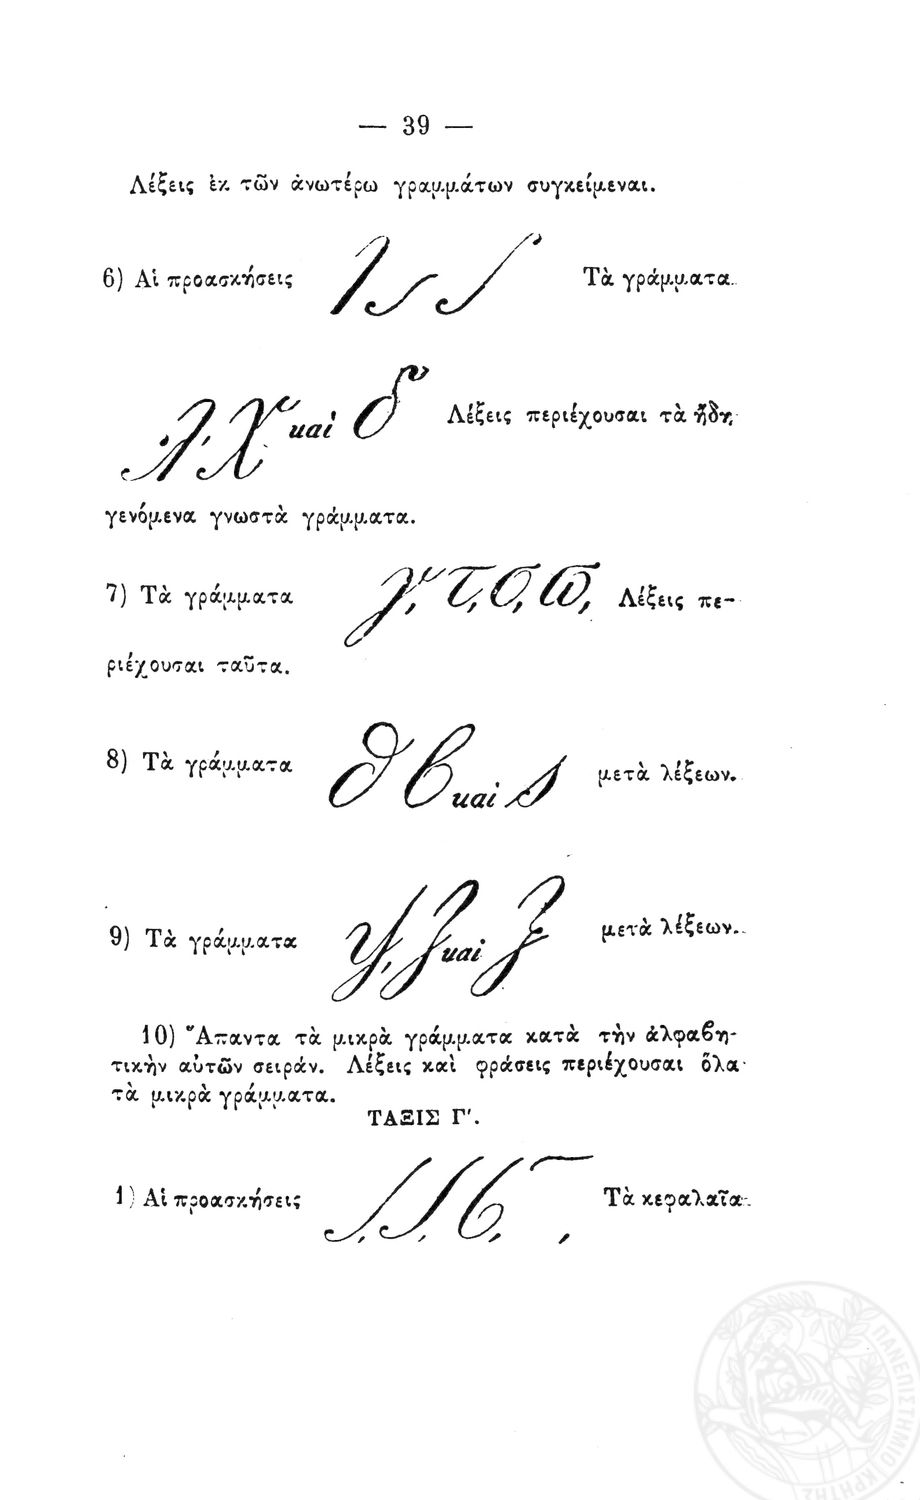 — 39 —
Λέξεις ἐκ τῶν ἀνωτέρω γραμμάτων συγκείμεναι.
6) Αἱ προασκήσεις Τὰ γράμματα
λ, χ καὶ δ Λέξεις περιέχουσαι τὰ ἤδη
γενόμενα γνωστὰ γράμματα.
7) Τὰ γράμματα γ, τ, σ, ϖ, Λέξεις πε-
ριέχουσαι ταῦτα.
8) Τὰ γράμματα θ β καὶ ς μετὰ λέξεων.
9) Τὰ γράμματα ψ, ζ καὶ ξ μετὰ λέξεων.
10) Ἅπαντα τὰ μικρὰ γράμματα κατὰ τὴν ἀλφαϐη-
τικὴν αὐτῶν σειράν. Λέξεις καὶ φράσεις περιέχουσαι ὅλα
τὰ μικρὰ γράμματα.
ΤΑΞΙΣ Γ'.
1) Αἱ προασκήσεις Τὰ κεφαλαῖα
ΠΑΝΕΠΙΣΤΗΜΙΟ ΚΡΗΤΗΣ